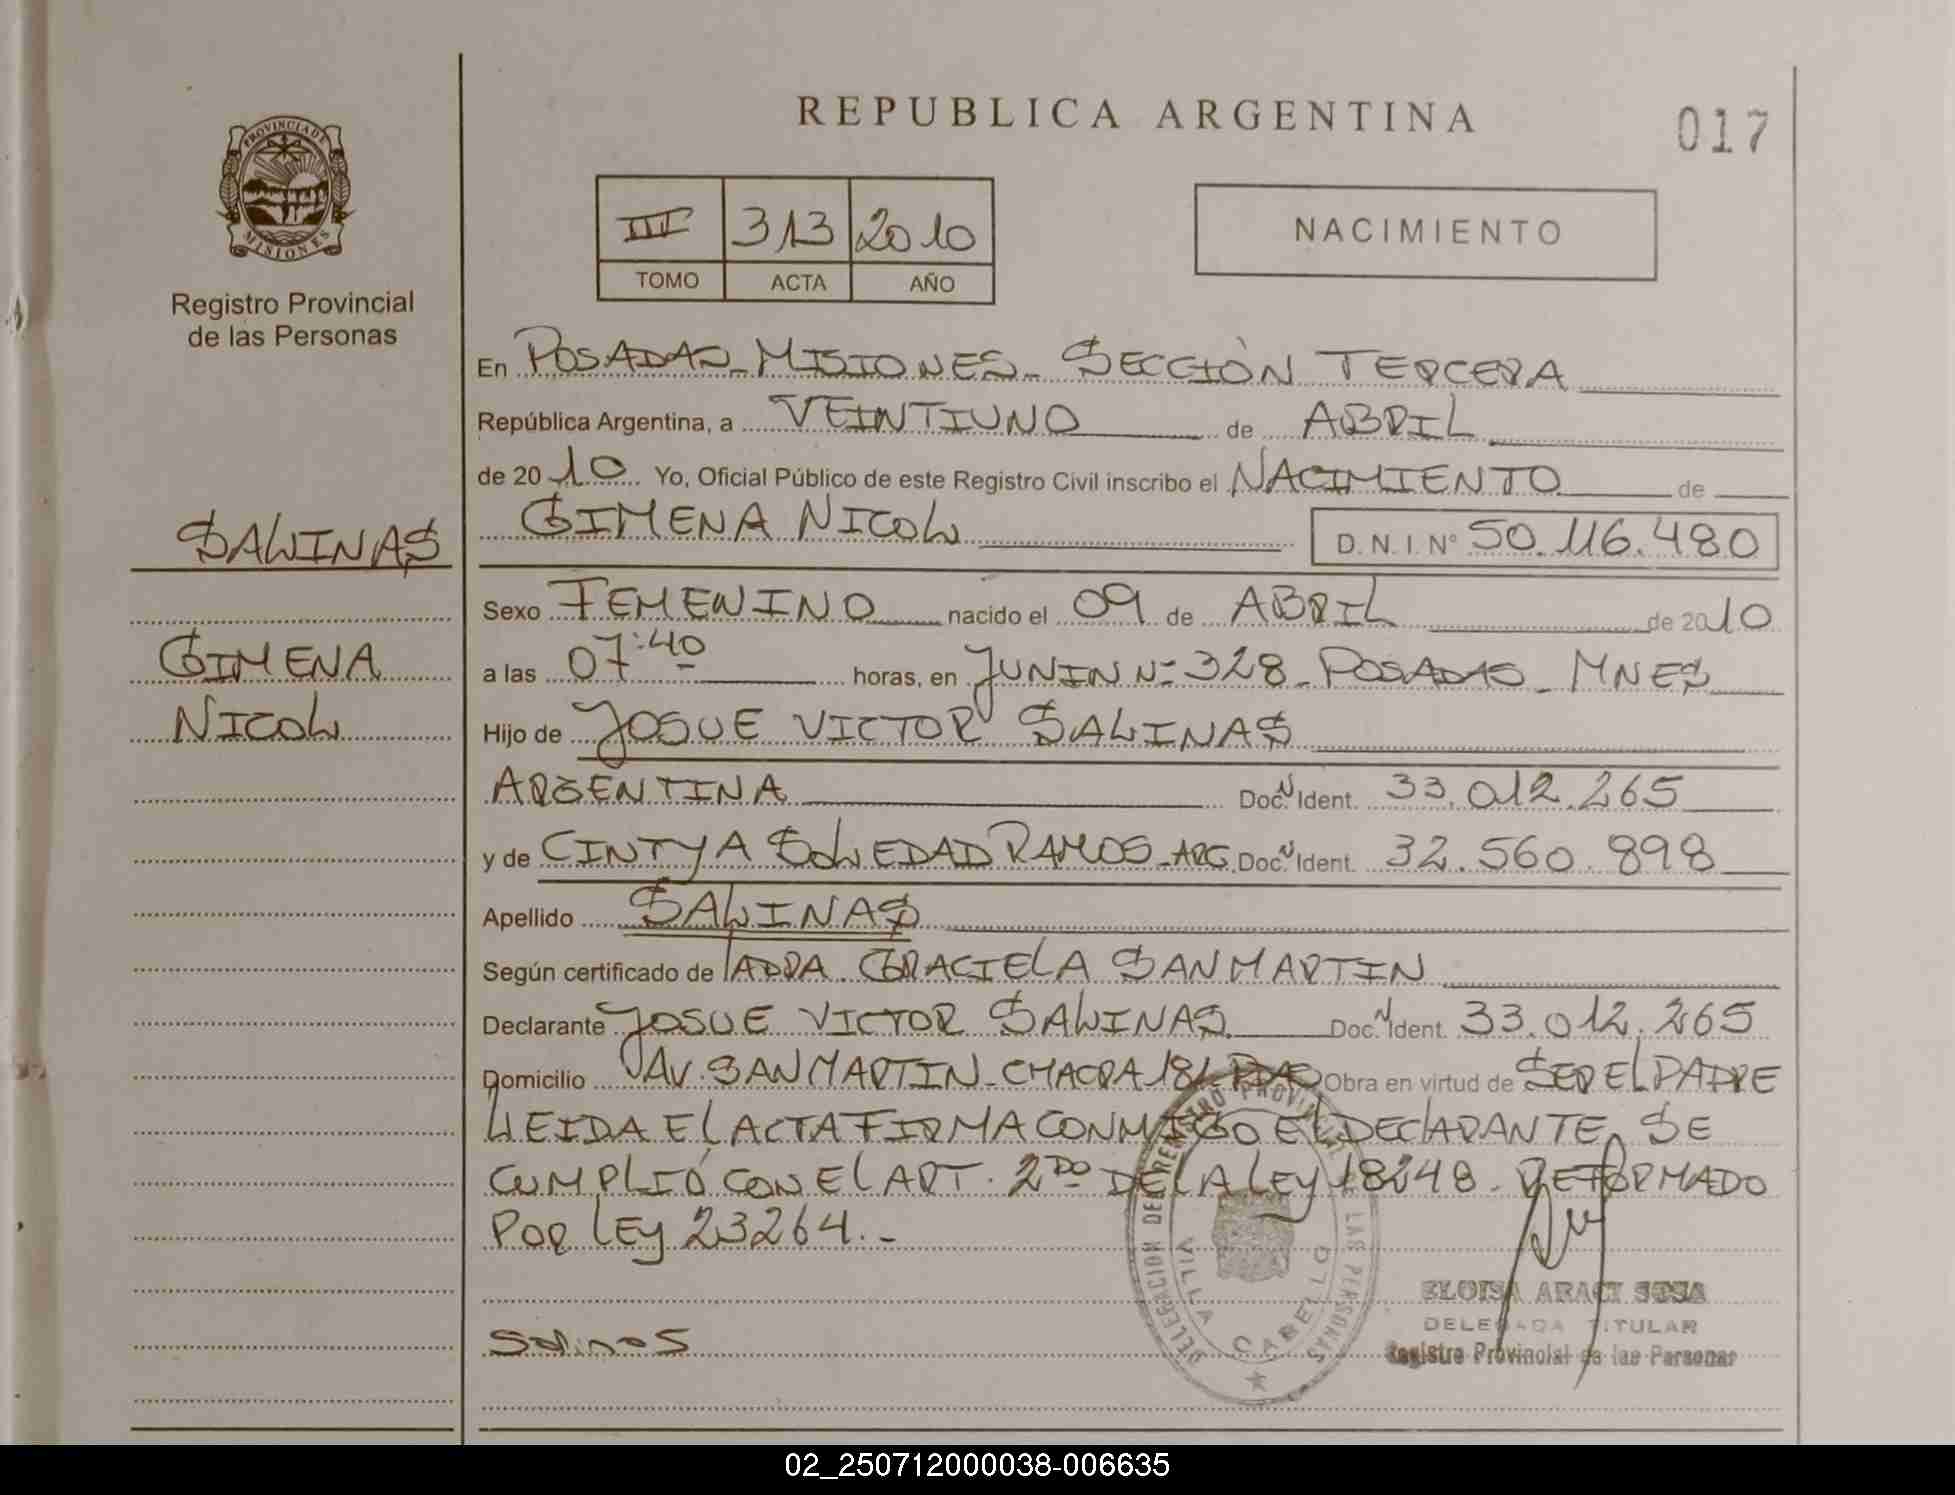 REPUBLICA ARGENTINA
017
PROVINCIA DE
MISIONES
Registro Provincial
de las Personas
III 313 2010
TOMO ACTA AÑO
NACIMIENTO
En POSADAS_MISIONES_ SECCIÓN TERCERA
República Argentina, a VEINTIUNO de ABRIL
de 2010 Yo, Oficial Público de este Registro Civil inscribo el NACIMIENTO de
GIMENA NICOL D.N.I. N° 50.116.480
SALINAS
GIMENA
NICOL
Sexo FEMENINO nacido el 09 de ABRIL de 2010
a las 07:40 horas, en JUNIN Nº 328_POSADAS_MNES
Hijo de JOSUE VICTOR SALINAS
ARGENTINA Doc. N Ident. 33.012.265
y de CINTYA SOLEDAD RAMOS_ARG. Doc. N Ident. 32.560.898
Apellido SALINAS
Según certificado de GRACIELA SANMARTIN
Declarante JOSUE VICTOR SALINAS Doc. N Ident. 33.012.265
Domicilio AV. SANMARTIN_CHACRA 181 PDAS Obra en virtud de SER EL PADRE
LEIDA EL ACTA FIRMA CONMIGO EL DECLARANTE, SE
CUMPLIÓ CON EL ART. 2DO DE LA LEY 18248. REFORMADO
POR LEY 23264._
DELEGACION DEL REGISTRO PROVINCIAL DE LAS PERSONAS
VILLA CABELLO
Salinas
ELOISA ARACI SOSA
DELEGADA TITULAR
Registro Provincial de las Personas
02_250712000038-006635